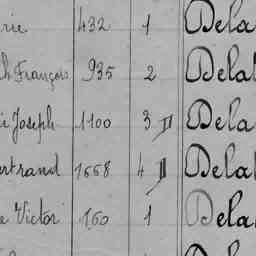 rie 432 1 Dela
ch François 935 2 Delal
ie Joseph 1100 3 Dela
ertrand 1668 4 Delal
e Victor 160 1 Delal